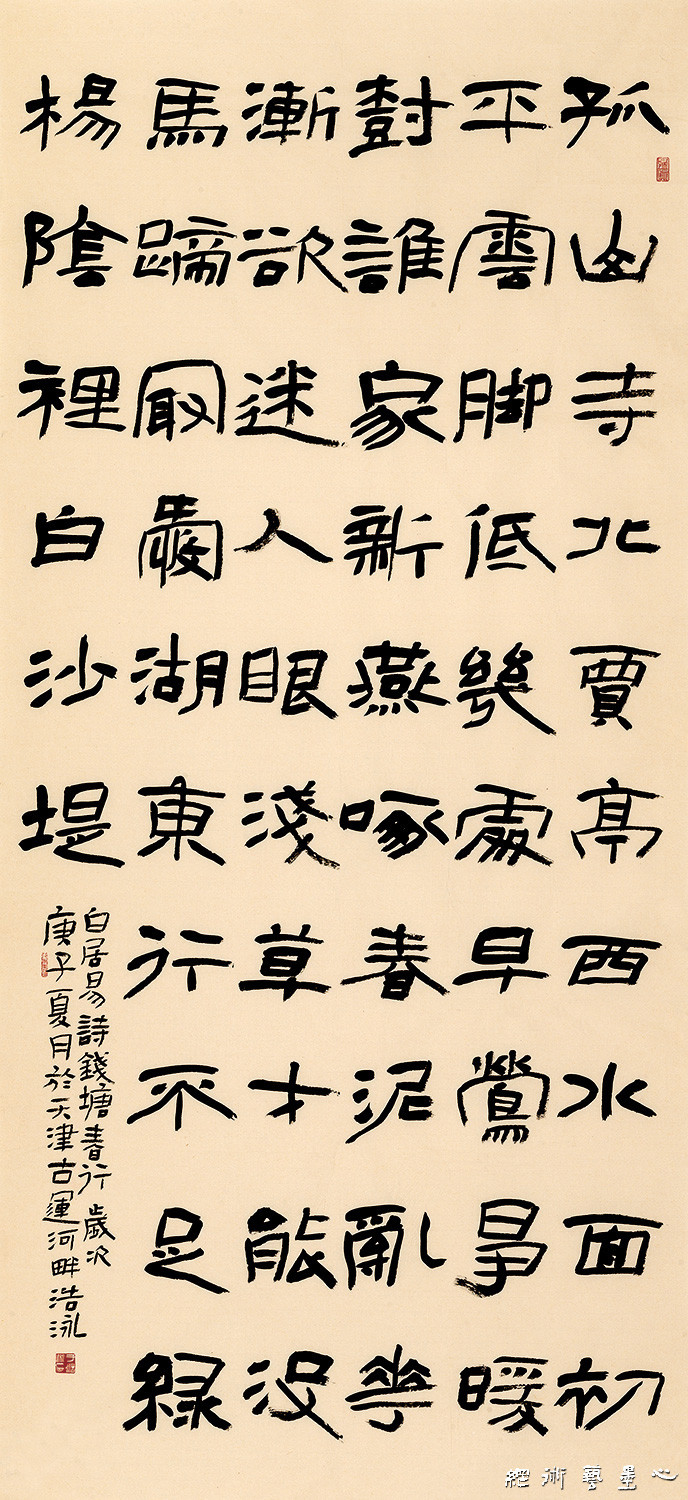 孤山寺北賈亭西水面初
平雲脚低幾處早鶯爭暖
尌誰家新燕啄春泥亂花
漸欲迷人眼淺草才能没
馬蹄最愛湖東行不足緑
楊陰裡白沙堤
白居易詩錢塘春行 歲次
庚子夏月於天津古運河畔浩泳
心墨藝術